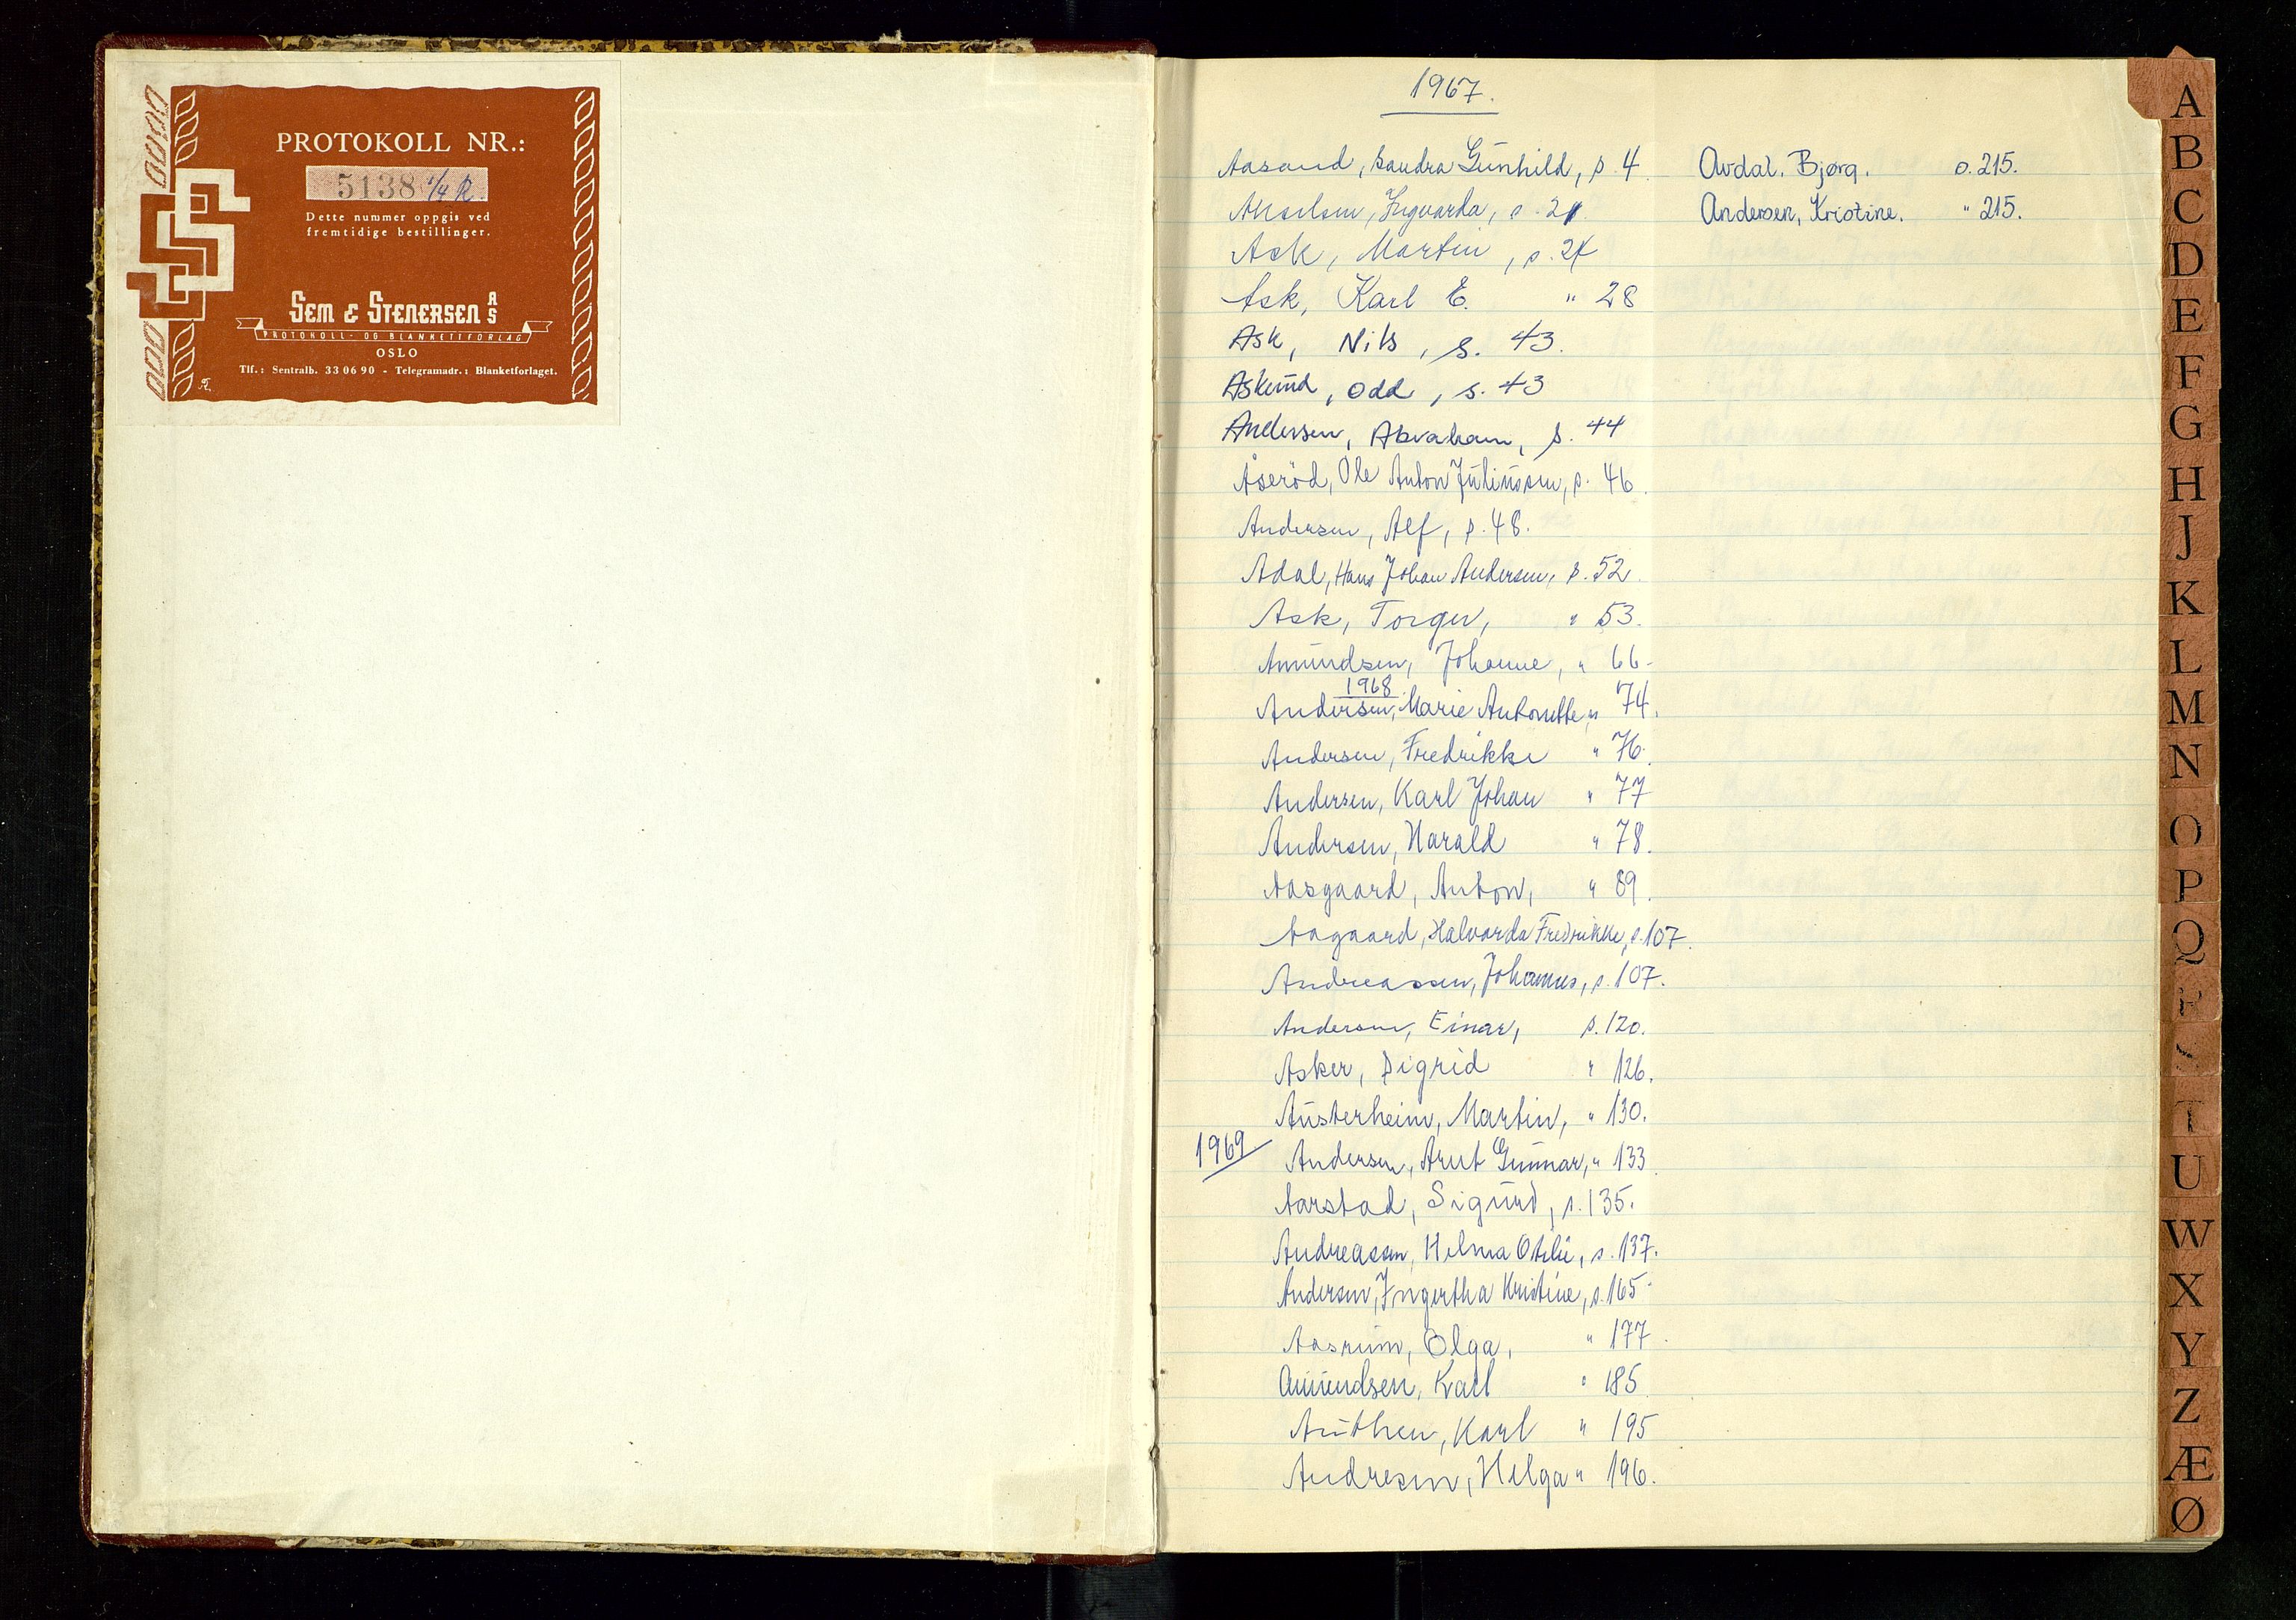 PROTOKOLL NR.:
5138 1/4 R.
Dette nummer oppgis ved
fremtidige bestillinger.
SEM & STENERSEN A/S
PROTOKOLL- OG BLANKETTFORLAG
OSLO
Tlf.: Sentralb. 33 06 90 - Telegramadr.: Blanketforlaget.
1967.
Aasand, Sandra Gunhild, s. 4
Akselsen, Ingvarda, s. 21
Ask, Martin, s. 24
Ask, Karl E. " 28
Ask, Nils, s. 43.
Askeund, Odd, s. 43
Andersen, Abraham, s. 44
Åserød, Ole Anton Juliussen, s. 46.
Andersen, Alf, s. 48.
Adal, Hans Johan Andersen, s. 52.
Ask, Torger, " 53.
Amundsen, Johanne, " 66-
1968
Andersen, Marie Antonette, " 74.
Andersen, Fredrikke " 76.
Andersen, Karl Johan " 77
Andersen, Harald " 78.
Aasgaard, Anton, " 89.
Aagaard, Halvarda Fredrikke, s. 107.
Andreassen, Johannes, s. 107.
Andersen, Einar, s. 120.
Asker, Sigrid " 126.
Austerheim, Martin, " 130.
1969
Andersen, Arnt Gunnar, " 133
Aarstad, Sigurd, s. 135.
Andreassen, Helma Otilie, s. 137.
Andersen, Ingertha Kristine, s. 165
Aasrum, Olga, " 177.
Amundsen, Karl " 185
Authen, Karl " 195
Andresen, Helga " 196.
Avdal, Bjørg. s. 215.
Andersen, Kristine. " 215.
A
B
C
D
E
F
G
H
J
K
L
M
N
O
P
Q
R
S
T
U
W
X
Y
Z
Æ
Ø